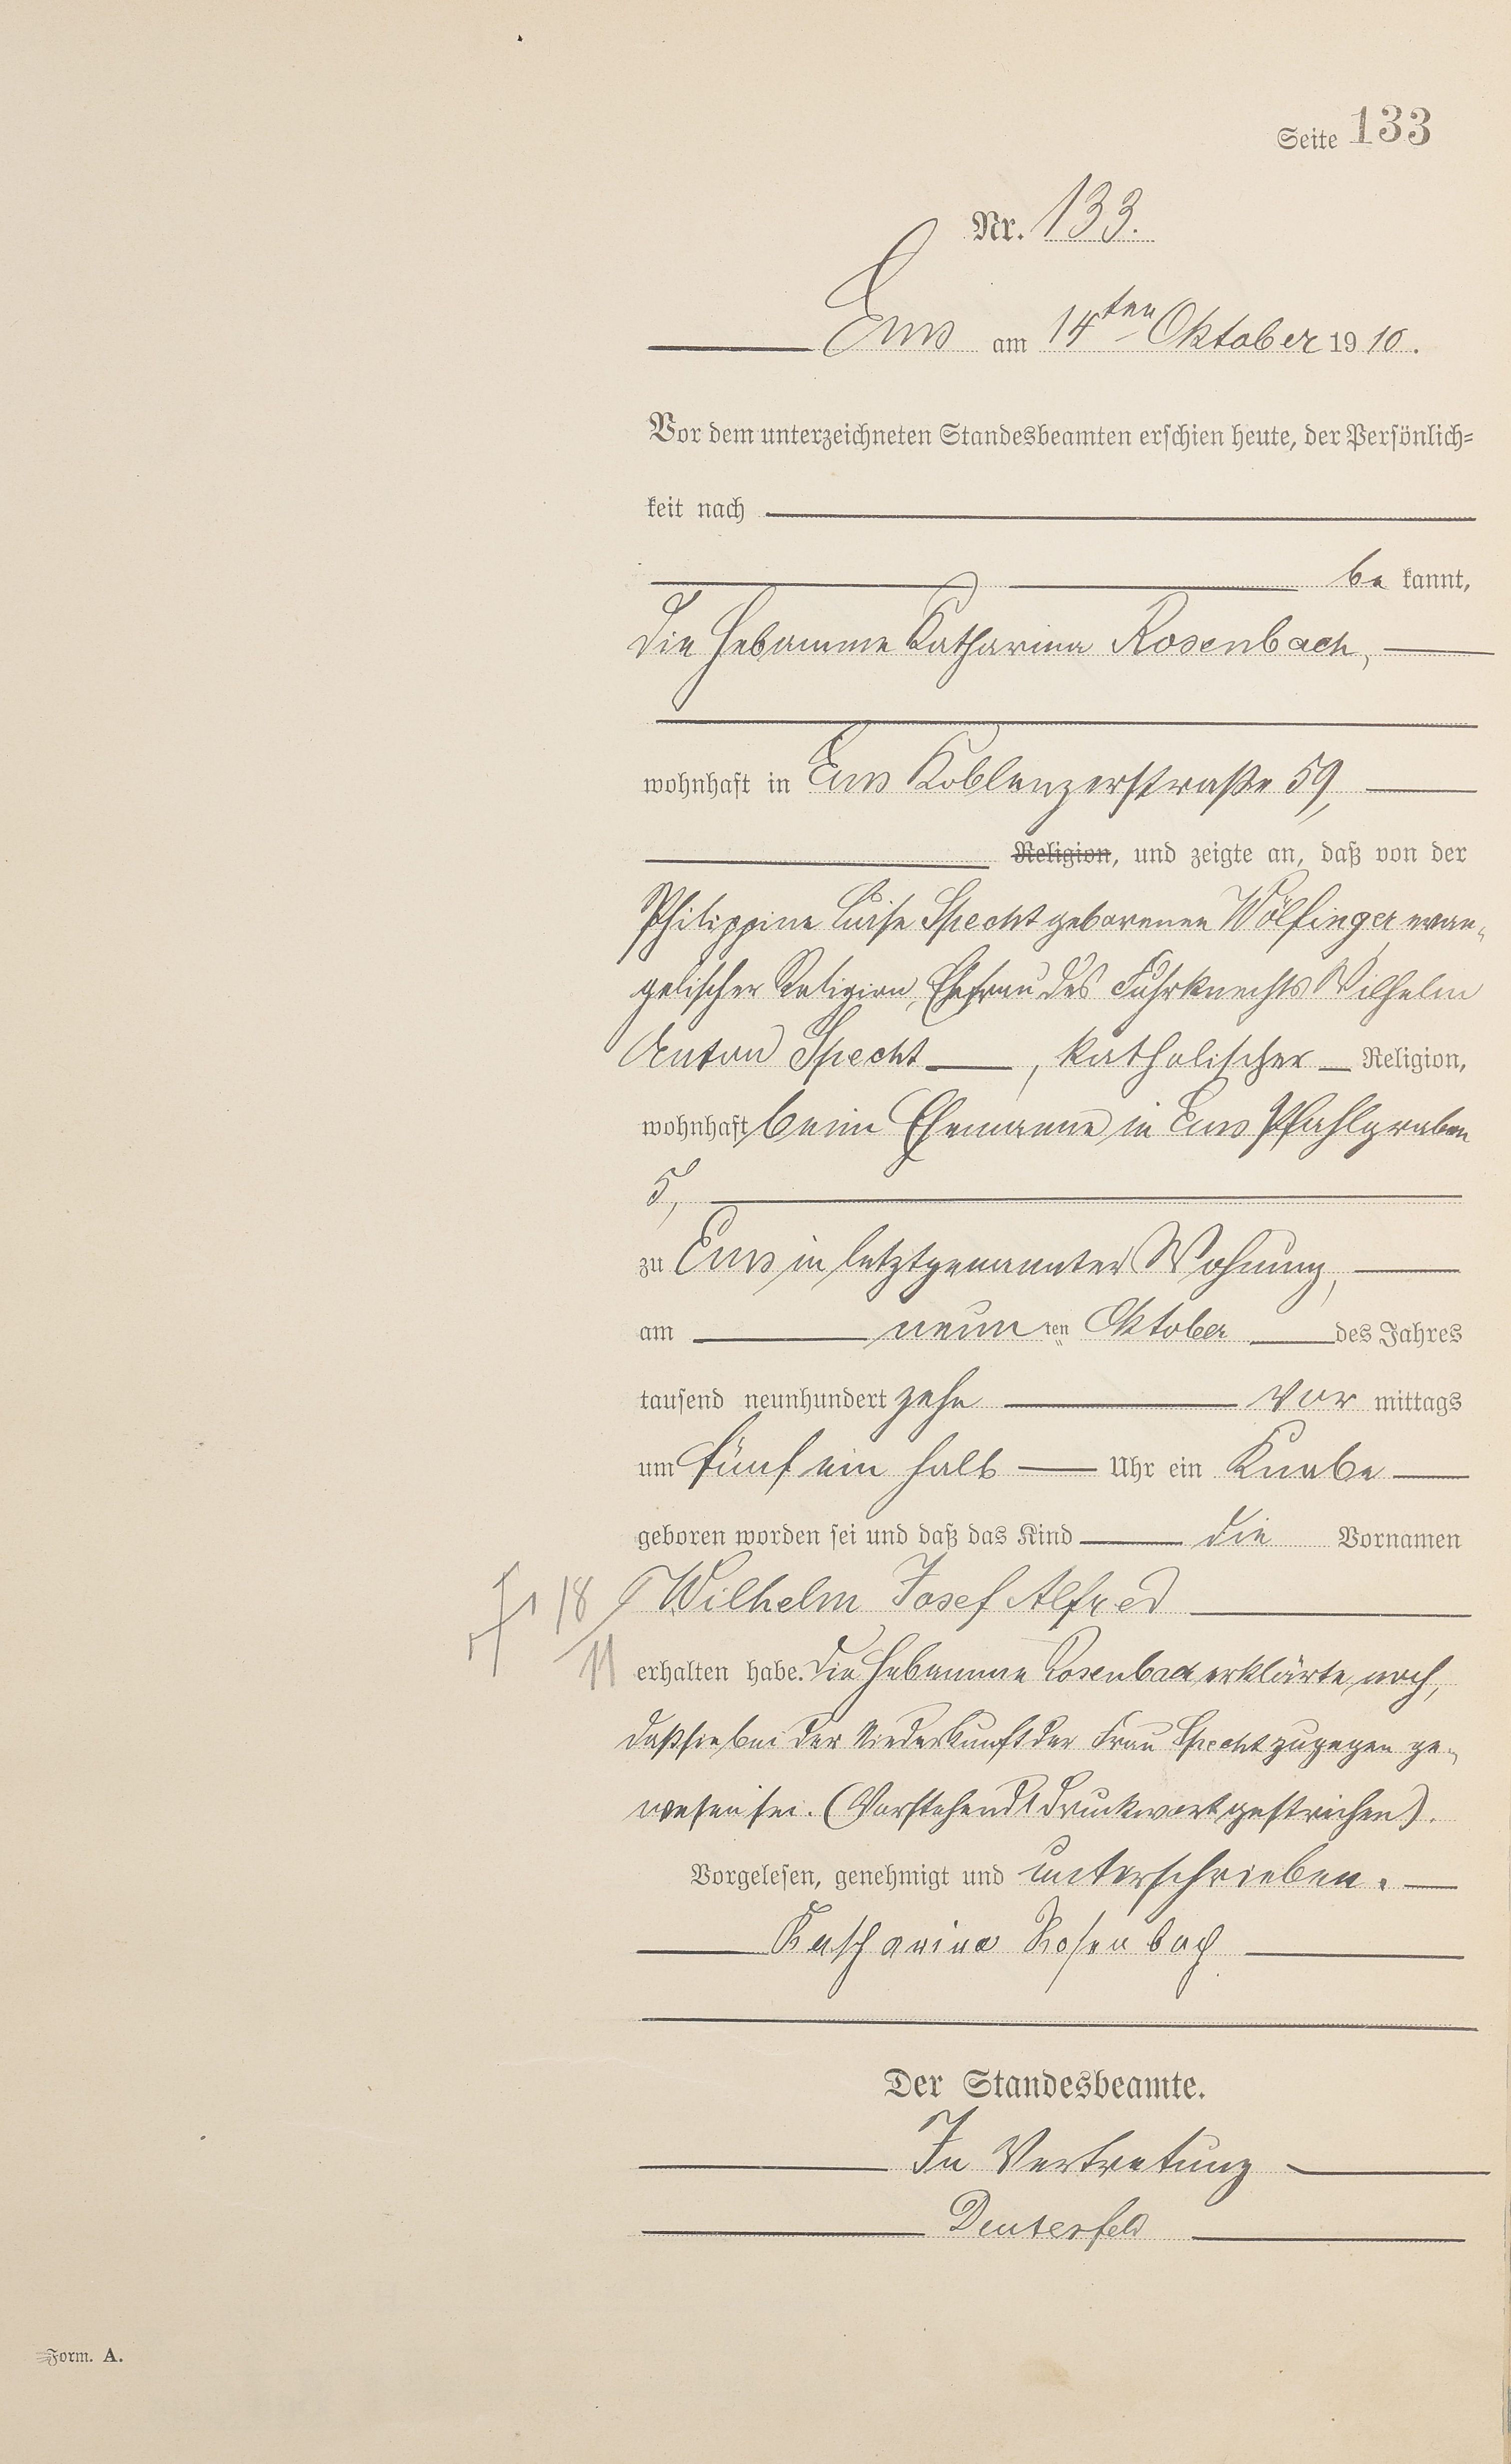 Seite 133
Nr. 133.
Ems am 14ten Oktober 1910.
Vor dem unterzeichneten Standesbeamten erschien heute, der Persönlich-
keit nach
be kannt,
die Hebamme Katharina Rosenbach,
wohnhaft in Ems Koblenzerstraße 59,
Religion, und zeigte an, daß von der
Philippine Luise Specht geborenen Wölfinger evan-
gelischer Religion, Ehefrau des Fuhrknechts Wilhelm
Anton Specht, katholischer Religion,
wohnhaft beim Ehemanne in Ems Pfahlgraben
5,
zu Ems in letztgenannter Wohnung,
am neunten Oktober des Jahres
tausend neunhundert zehn vor mittags
um fünf ein halb Uhr ein Knabe
geboren worden sei und daß das Kind die Vornamen
Wilhelm Josef Alfred
18
11
erhalten habe. Die Hebamme Rosenbach erklärte noch,
daß sie bei der Niederkunft der Frau Specht zugegen ge-
wesen sei. (Vorstehend 1 Druckwort gestrichen).
Vorgelesen, genehmigt und unterschrieben.
Katharina Rosenbach
Der Standesbeamte.
In Vertretung
Form. A.